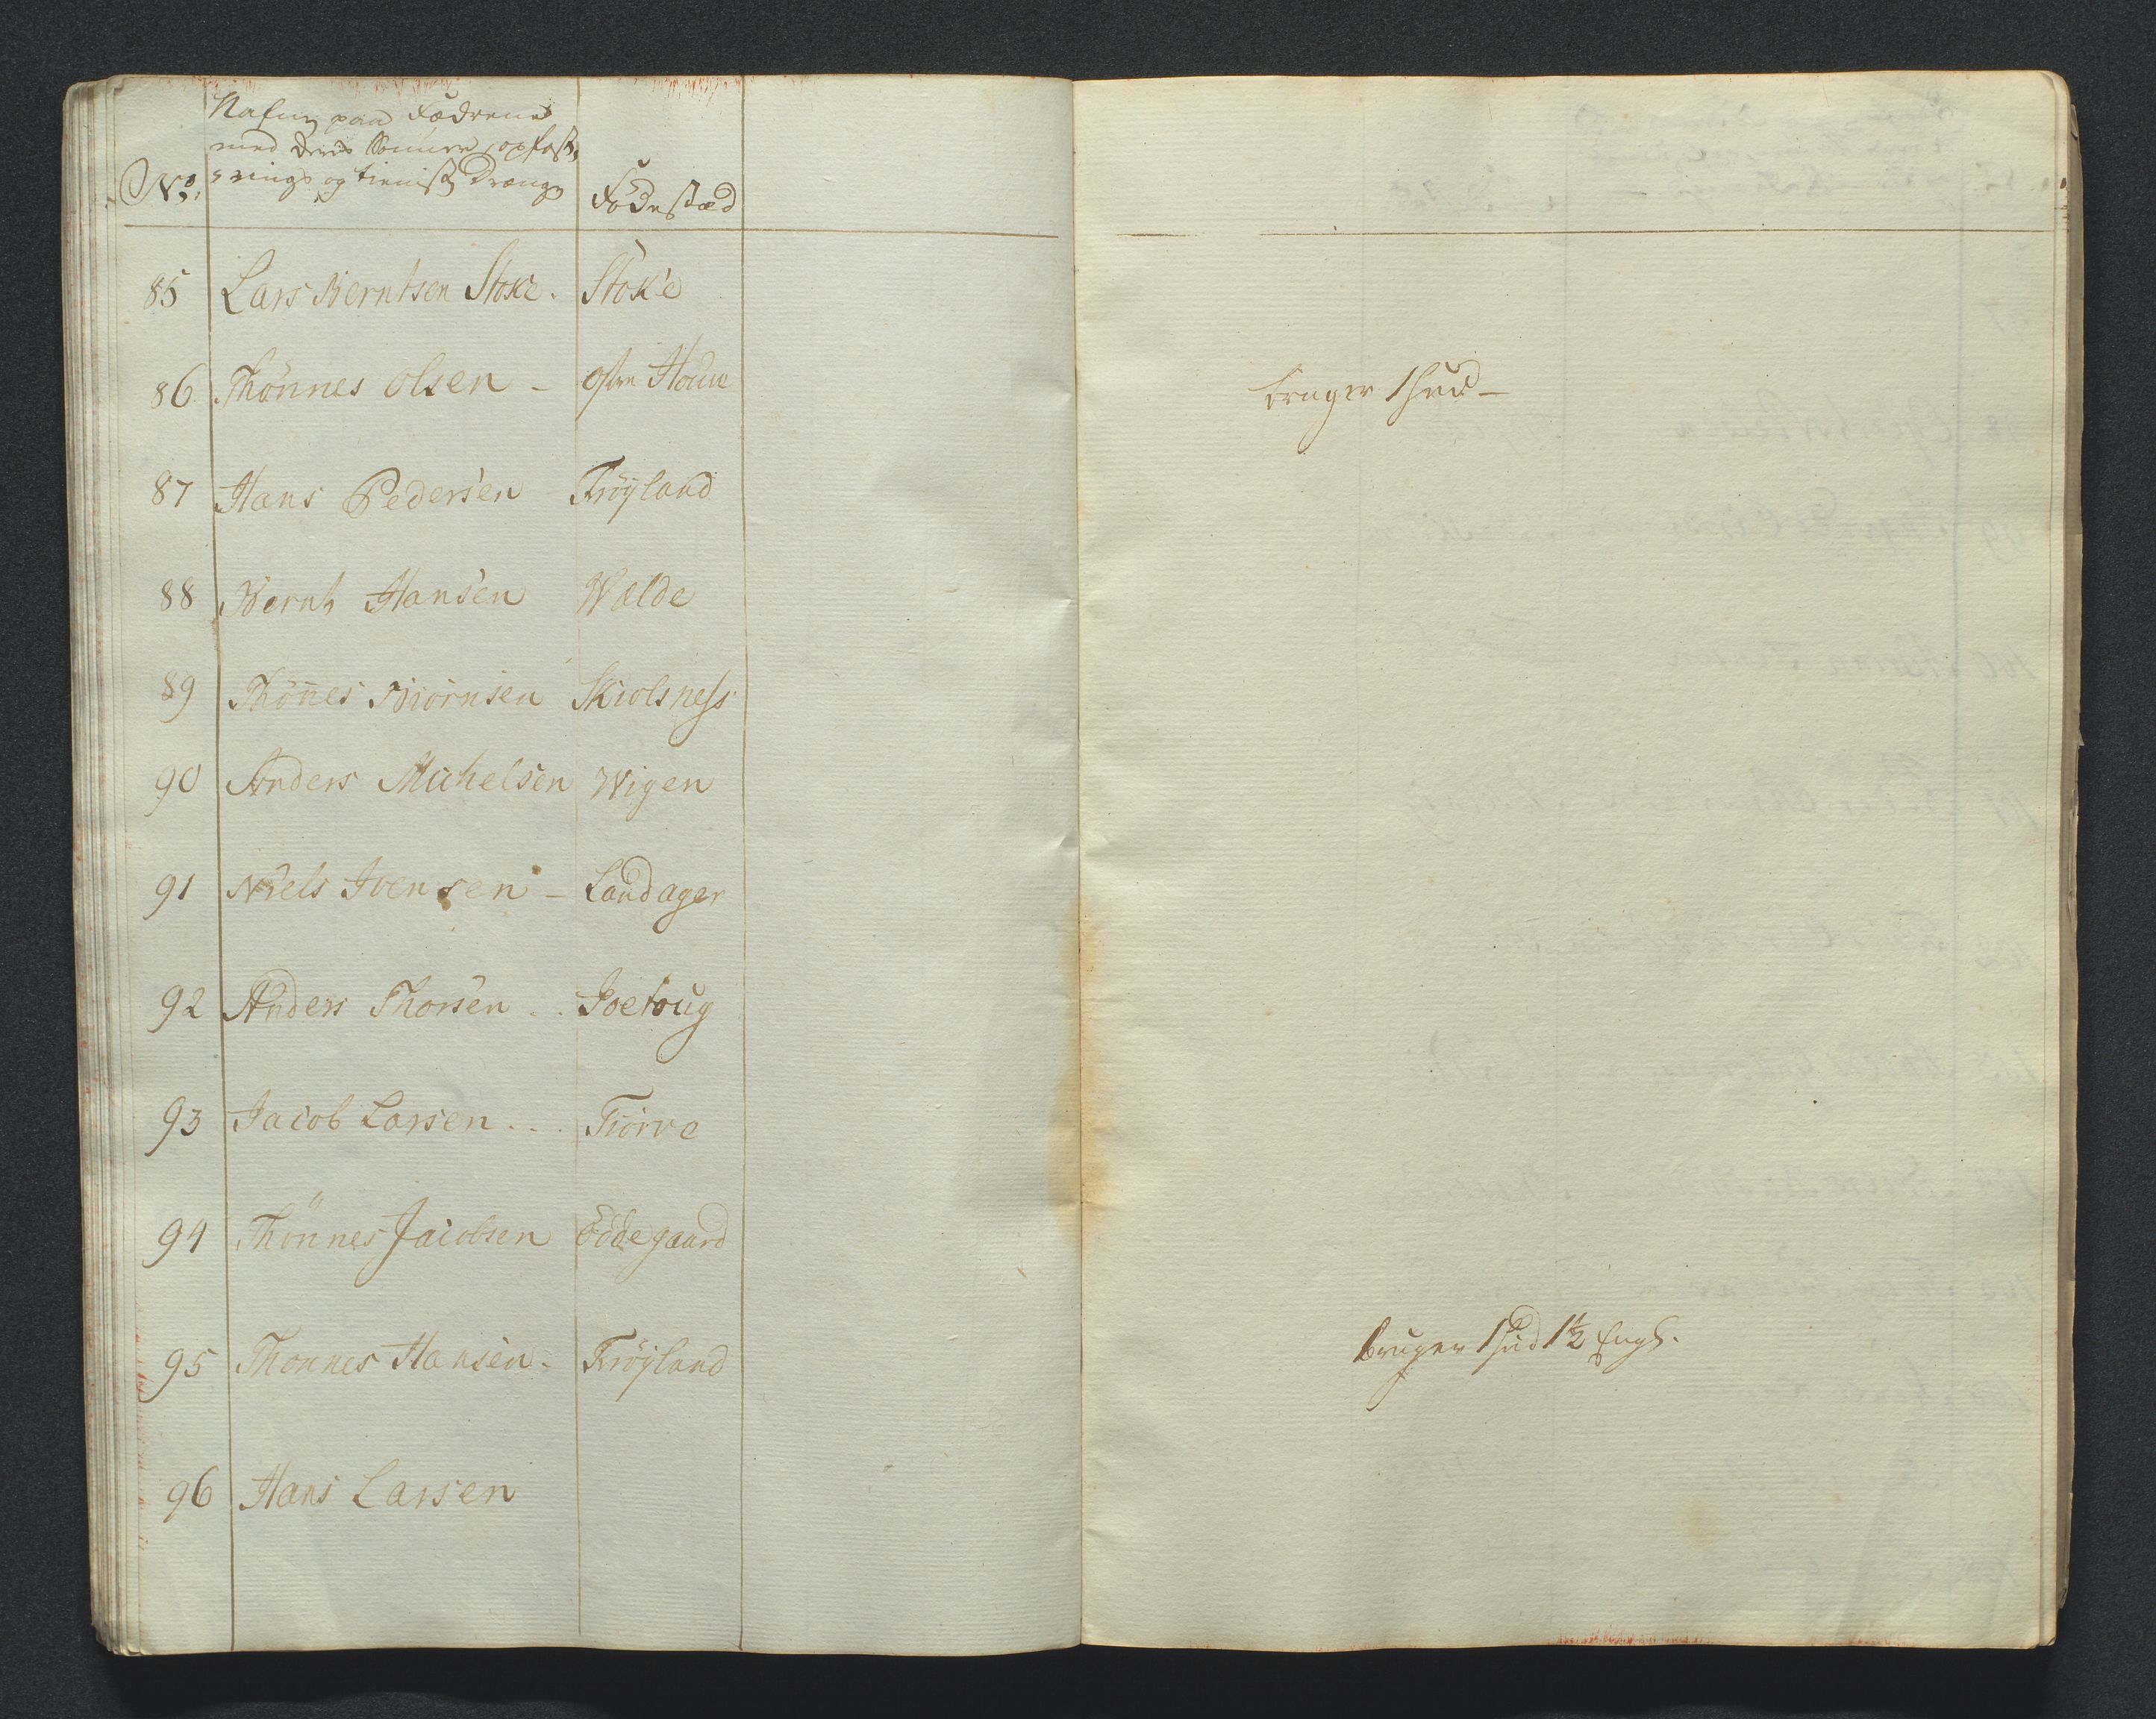 Nafne paa Fædrene
med deris Sønner, opfost,
No. rings og tienist Drenge Fødestæd
85 Lars Berntsen Stoke. Stoke
86 Thönnes Olsen - østre Houe
87 Hans Pedersen Tröyland
88 Bernt Hansen Walde
89 Thönes Biörnsen Skiolsness
90 Anders Michelsen Wigen
91 Niels Ivensen - Landager
92 Anders Thorsen .. Joetoug
93 Jacob Larsen ... Tiörve
94 Thönnes Jacobsen Öödegaard
95 Thonnes Hansen - Tröyland
96 Hans Larsen
bruger 1 hud -
bruger 1 hud 1½ Engl.